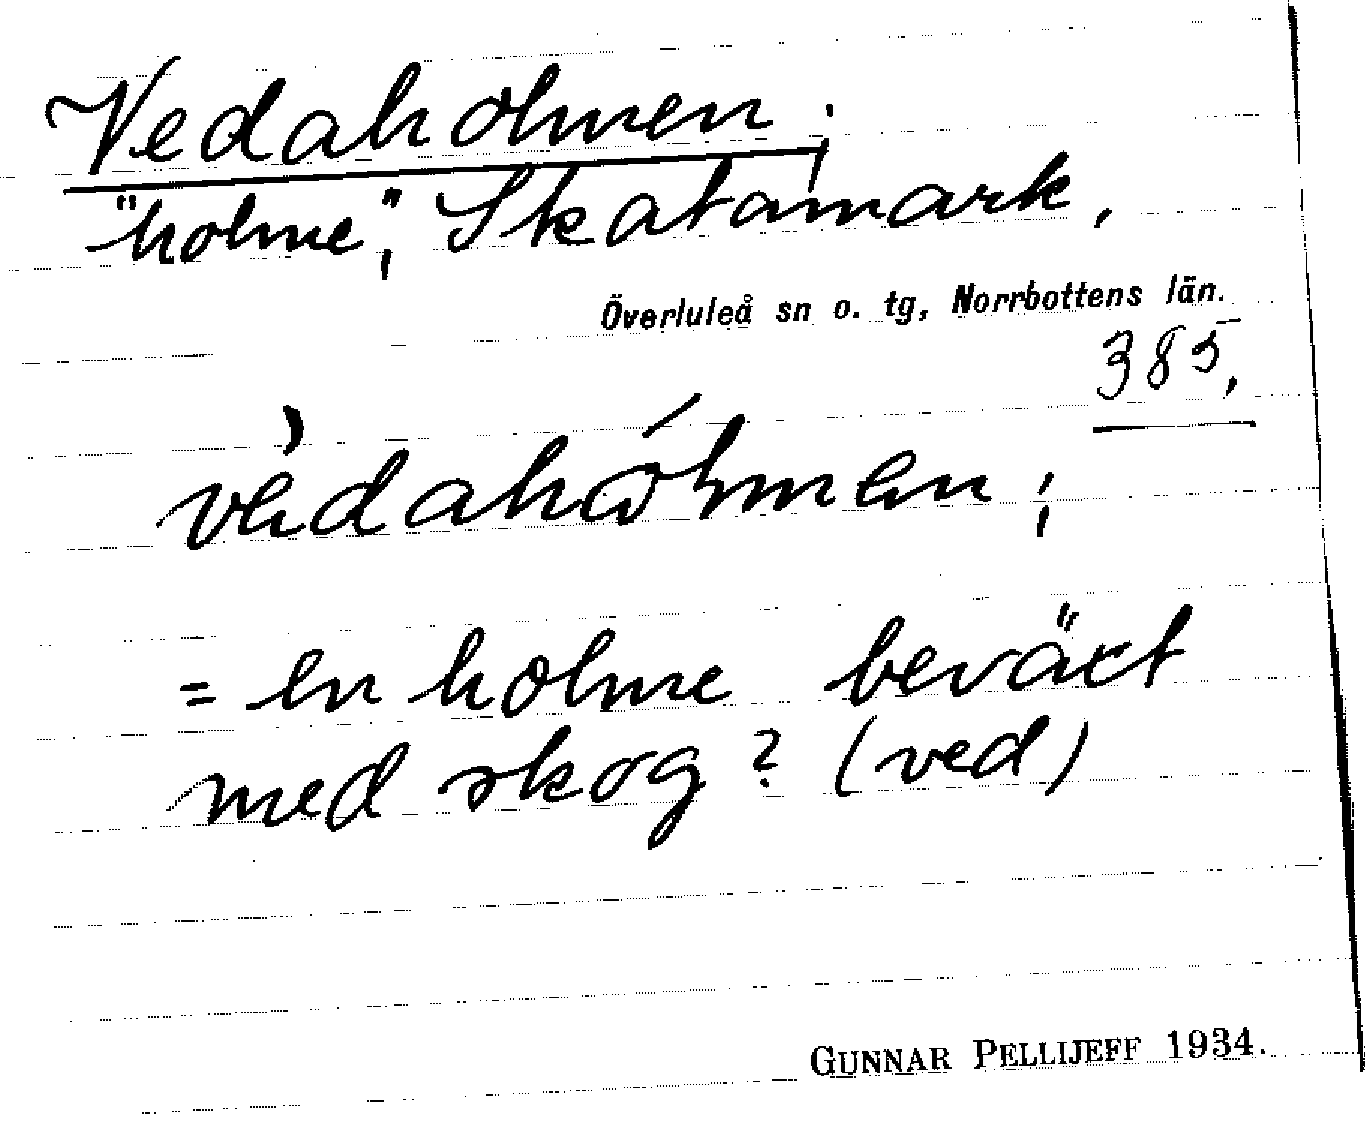 Vedaholmen;
"holme", Skatamark,
Överluleå sn o. tg, Norrbottens län.
385.
vèdahólmen;
= en holme beväxt
med skog? (ved)
GUNNAR PELLIJEFF 1934.